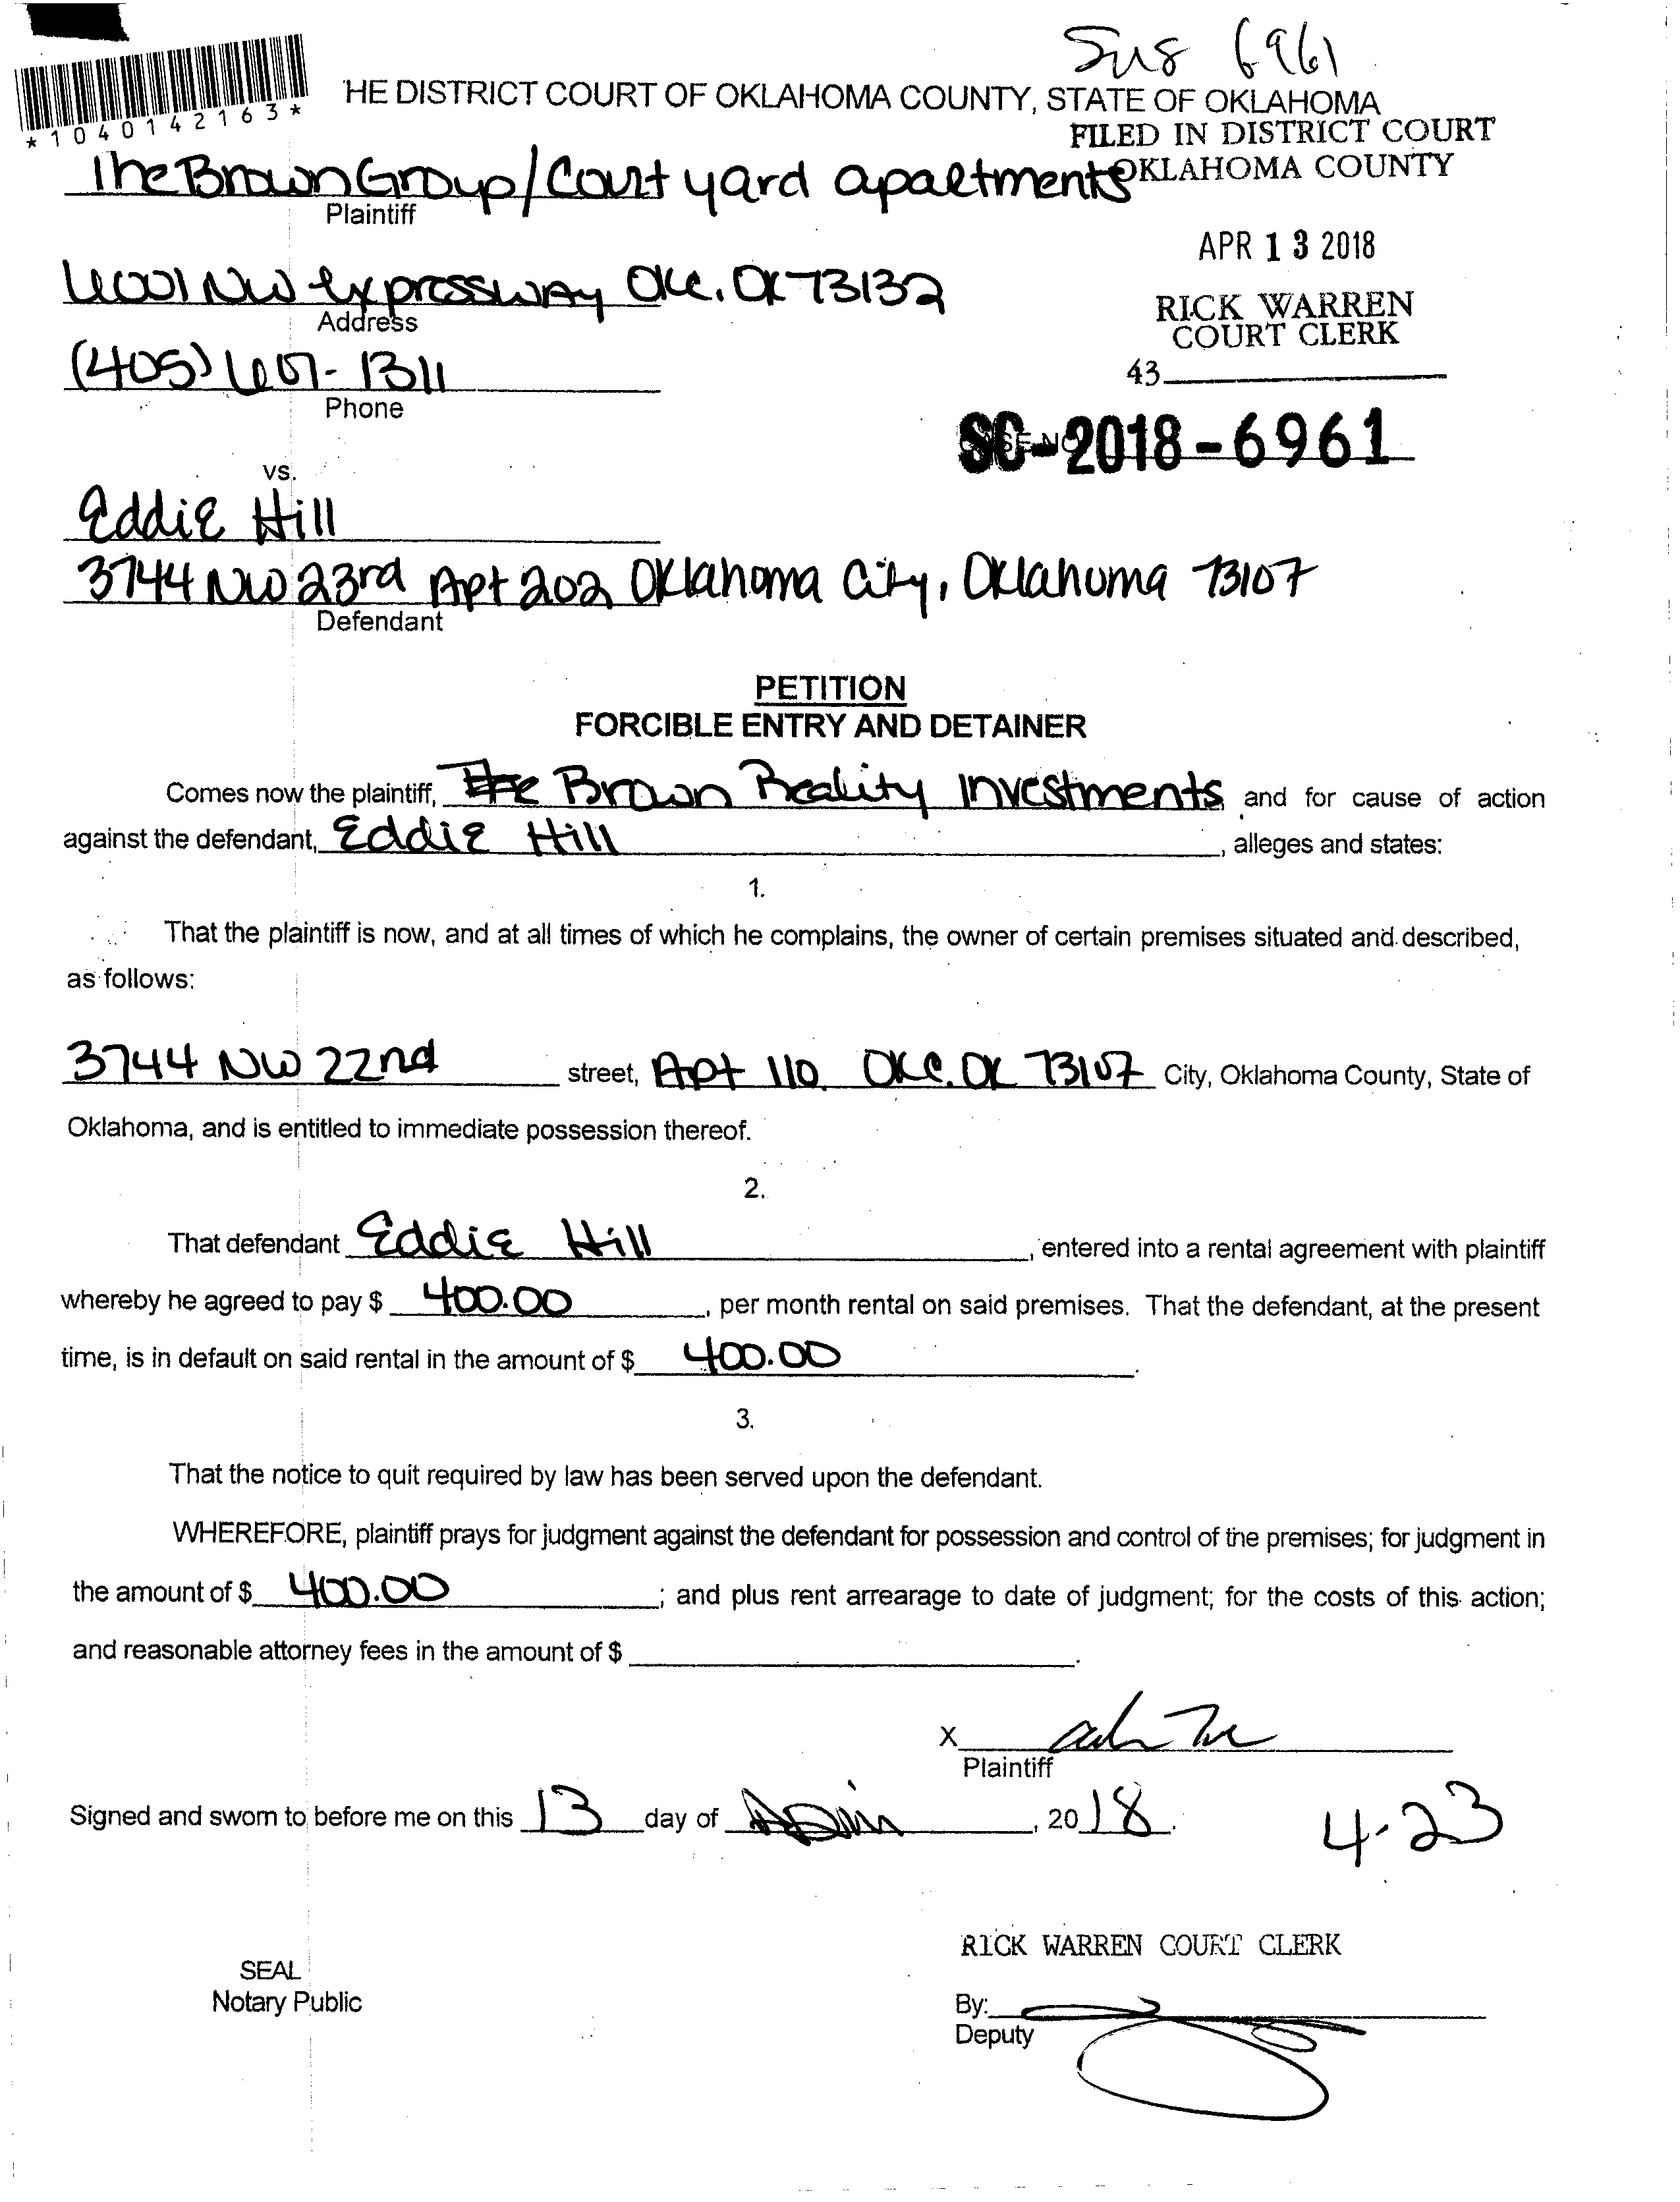 SMS 6961
HE DISTRICT COURT OF OKLAHOMA COUNTY, STATE OF OKLAHOMA
*1040142163*
FILED IN DISTRICT COURT
OKLAHOMA COUNTY
The Brown Group/Court yard apartments
Plaintiff
APR 13 2018
6001 NW Expressway OKC. OK 73132
Address
RICK WARREN
COURT CLERK
(405) 607-1311
Phone
43
SC-2018-6961
vs.
Eddie Hill
3744 NW 23rd Apt 202 Oklahoma City, Oklahoma 73107
Defendant
PETITION
FORCIBLE ENTRY AND DETAINER
Comes now the plaintiff, The Brown Reality Investments, and for cause of action
against the defendant, Eddie Hill, alleges and states:
1.
That the plaintiff is now, and at all times of which he complains, the owner of certain premises situated and described,
as follows:
3744 NW 22nd street, Apt 110. OKC. OK 73107 City, Oklahoma County, State of
Oklahoma, and is entitled to immediate possession thereof.
2.
That defendant Eddie Hill, entered into a rental agreement with plaintiff
whereby he agreed to pay $ 400.00, per month rental on said premises. That the defendant, at the present
time, is in default on said rental in the amount of $ 400.00.
3.
That the notice to quit required by law has been served upon the defendant.
WHEREFORE, plaintiff prays for judgment against the defendant for possession and control of the premises; for judgment in
the amount of $ 400.00; and plus rent arrearage to date of judgment; for the costs of this action;
and reasonable attorney fees in the amount of $ .
X
Plaintiff
Signed and sworn to before me on this 13 day of April, 2018.
4-23
RICK WARREN COURT CLERK
SEAL
Notary Public
By:
Deputy